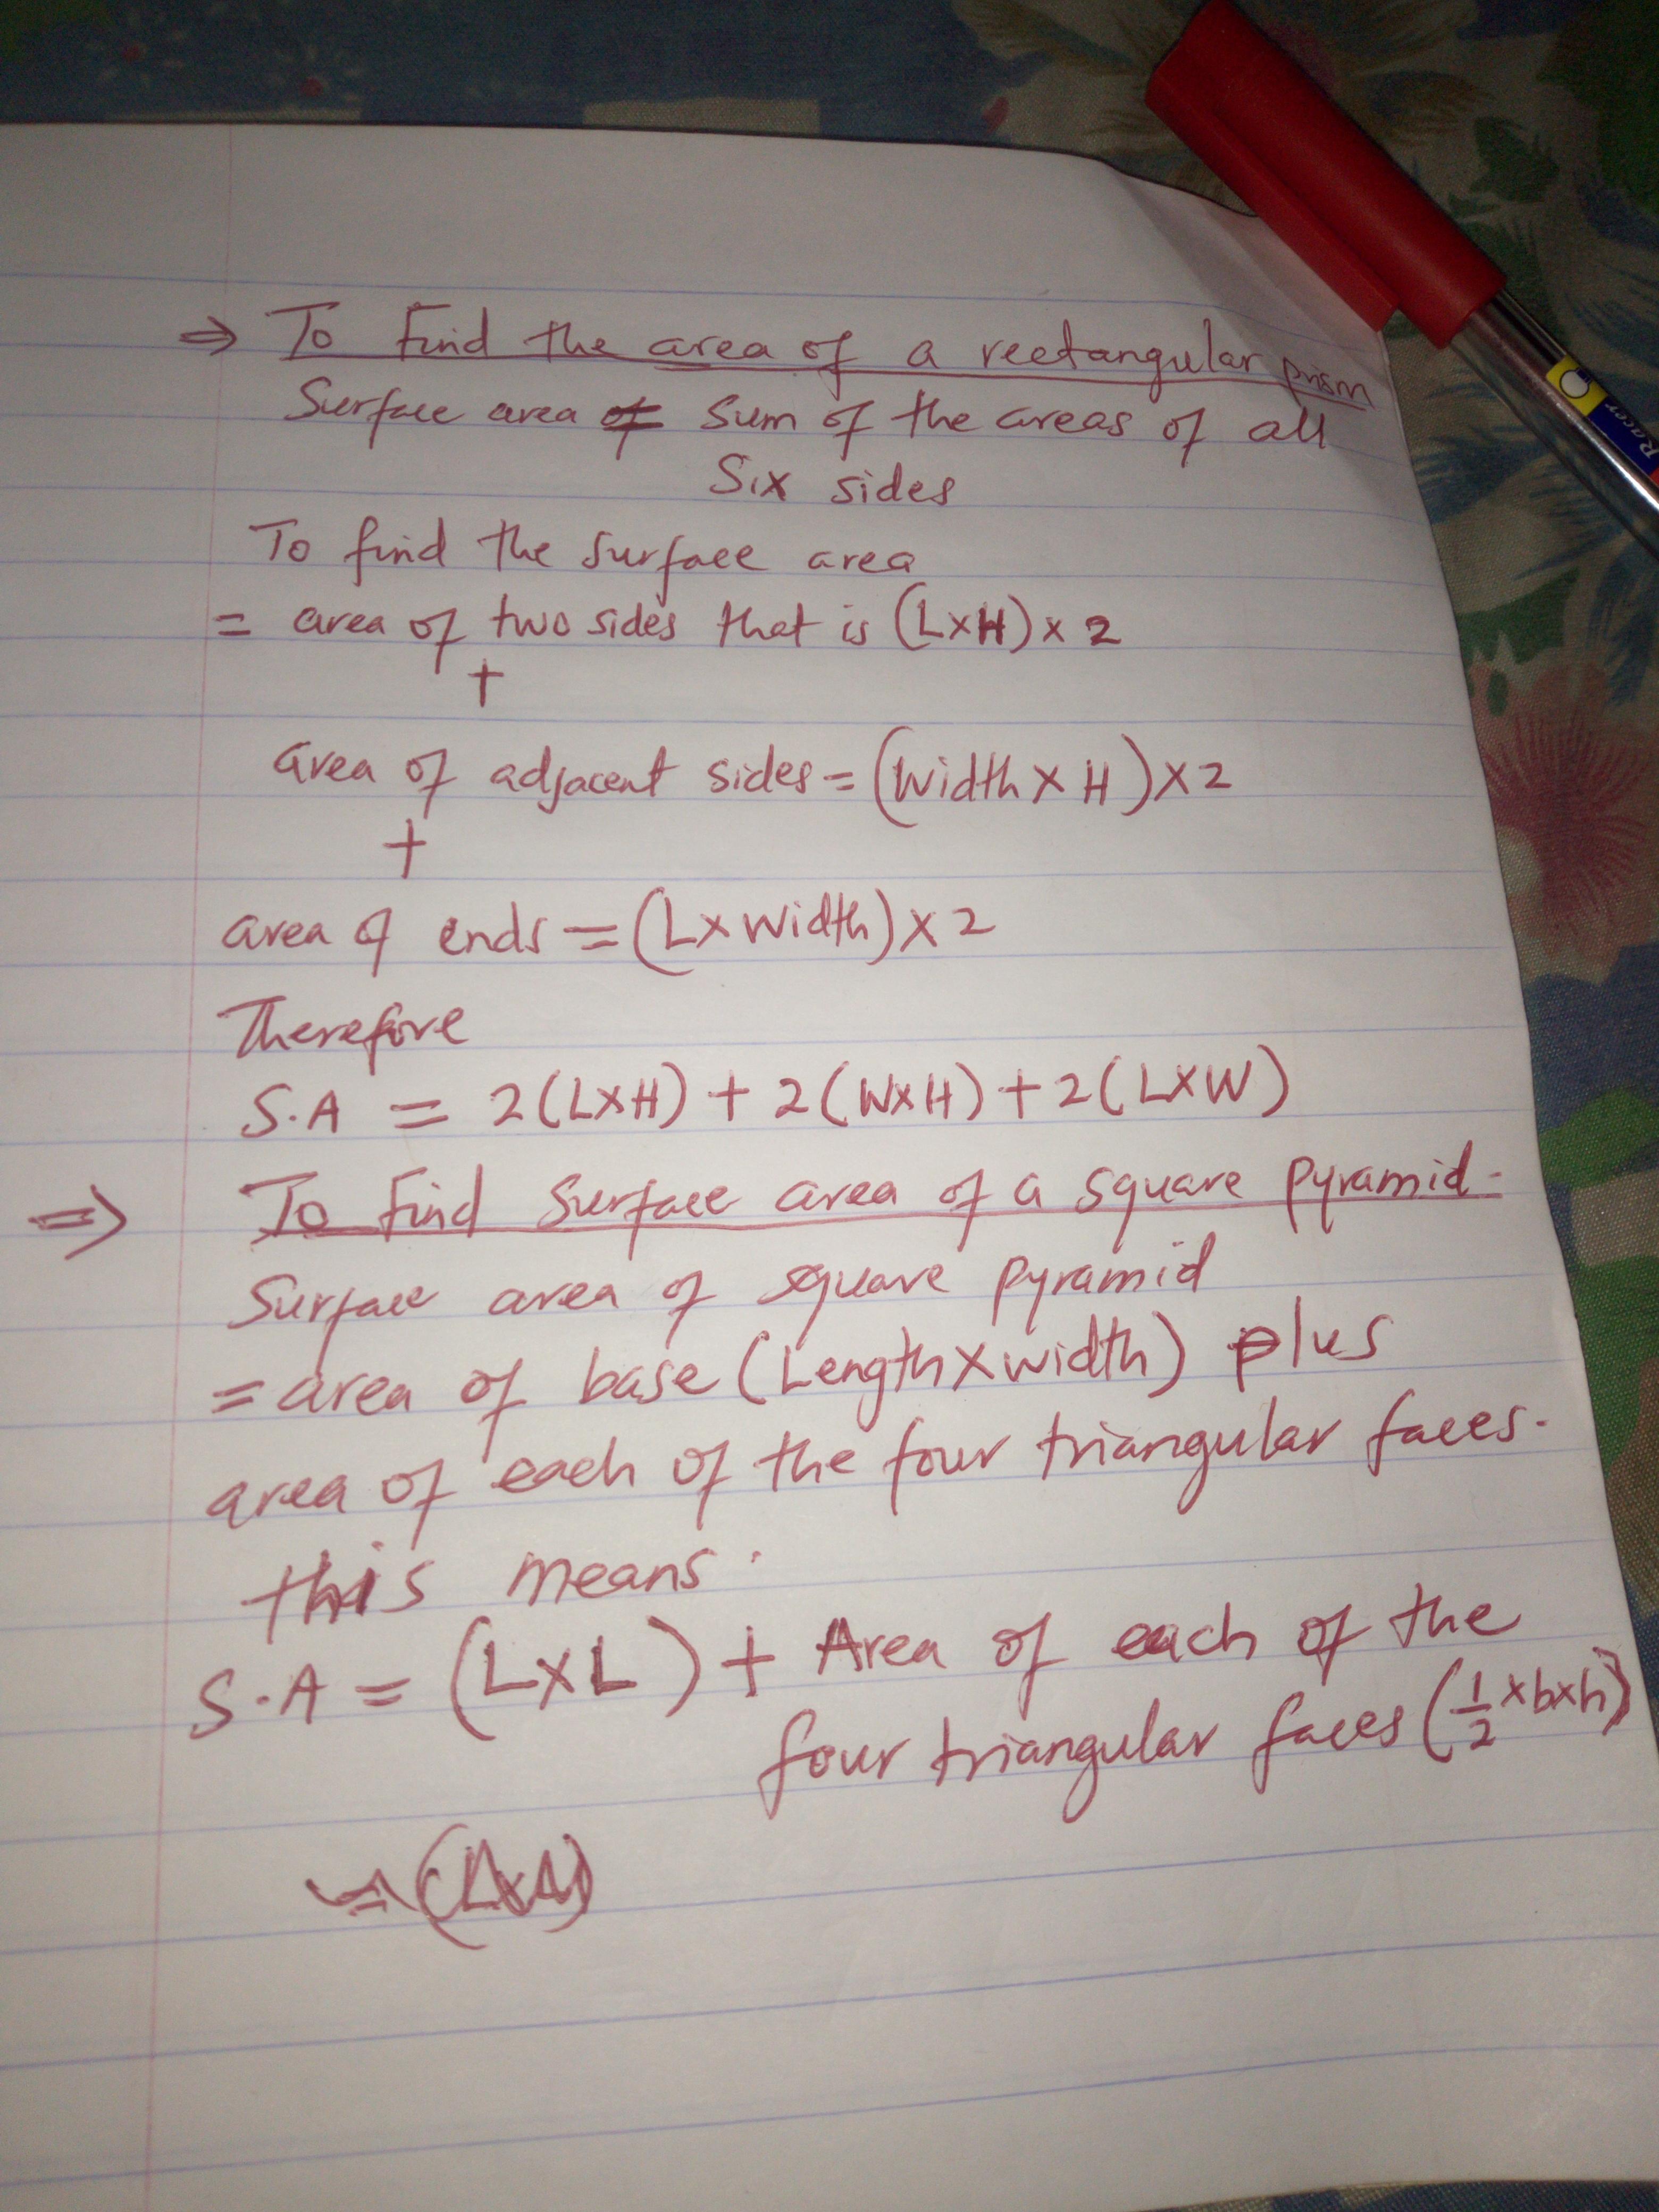 ⇒ To Find the area of a rectangular prism
Surface area = Sum of the areas of all
Six sides
To find the surface area
= area of two sides that is (L×H)× 2
+
area of adjacent sides = (Width × H)×2
+
area of ends = (L× width)×2
Therefore
S.A = 2(L×H) + 2(W×H) + 2(L×W)
⇒ To Find Surface area of a square pyramid.
Surface area of square pyramid
= area of base (Length×width) plus
area of each of the four triangular faces.
this means.
S.A = (L×L) + Area of each of the
four triangular faces (1/2 ×b×h)
Racer